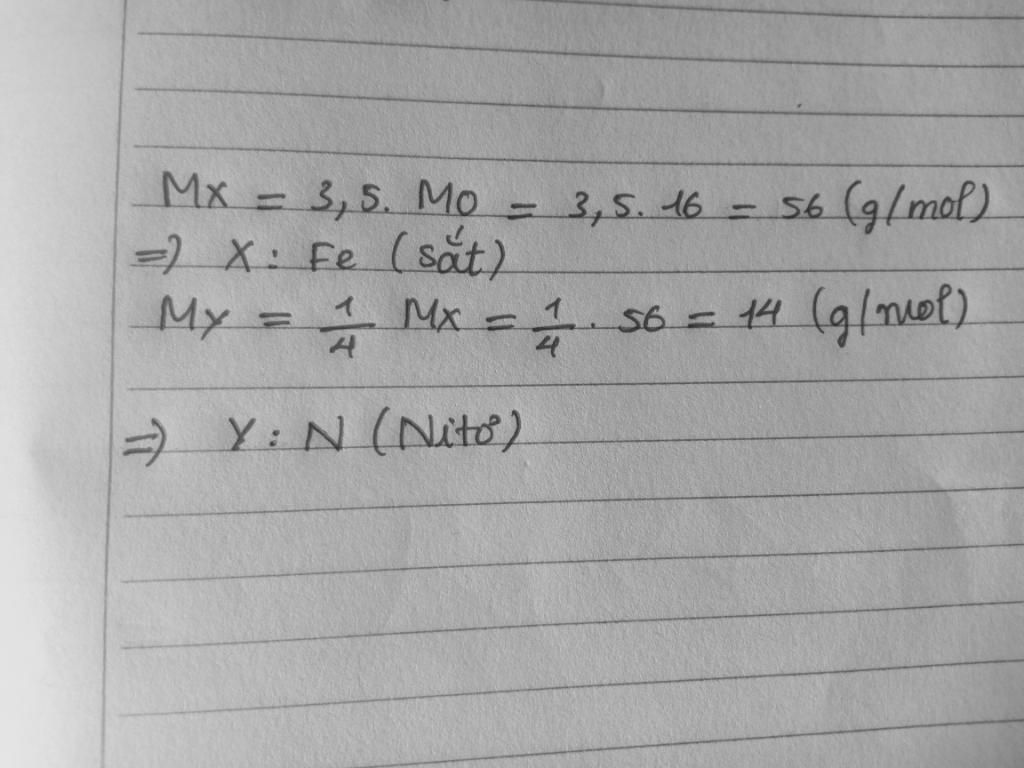 Mx = 3,5. Mo = 3,5. 16 = 56 (g/mol)
=) X: Fe (sắt)
My = 1/4 Mx = 1/4 . 56 = 14 (g/mol)
=) Y: N (Nitơ)